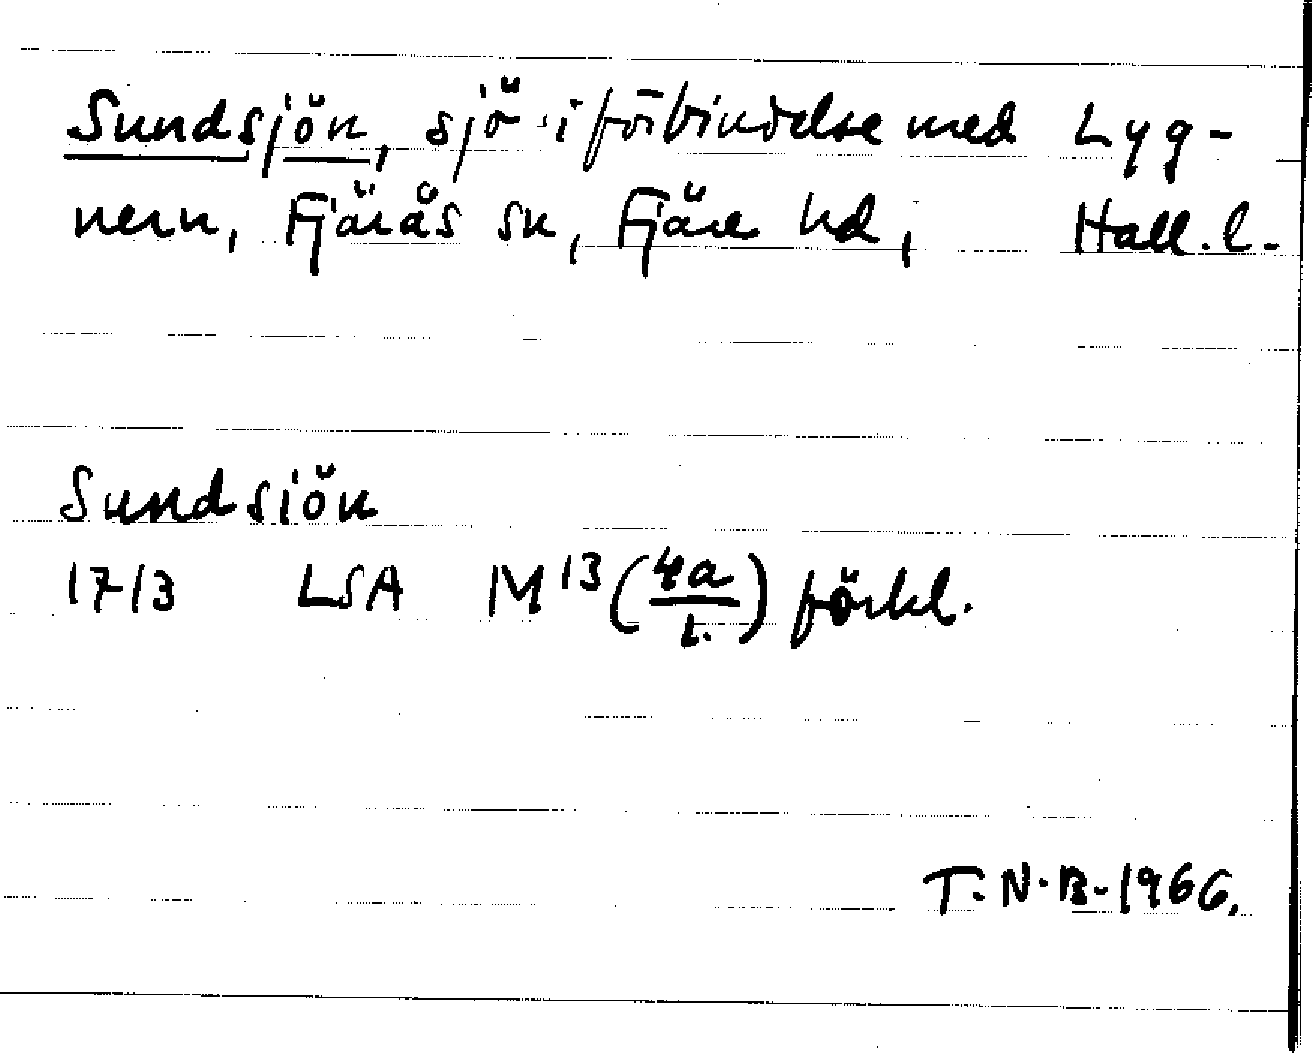 Sundsjön, sjö i förbindelse med Lyg-
nern, Fjärås sn, Fjäre hd, Hall. l.
Sundsiön
1713 LSA M 13 (4a/1.) förkl.
T.N.B. 1966.